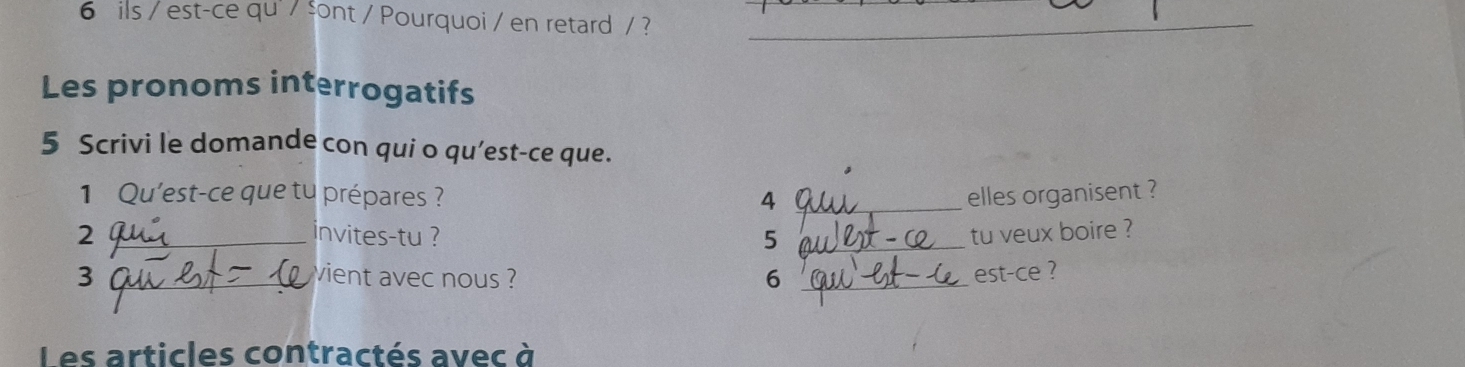 6 ils / est-ce qu' / sont / Pourquoi / en retard / ?
Les pronoms interrogatifs
5 Scrivi le domande con qui o qu'est-ce que.
1 Qu'est-ce que tu prépares ?
2 qui invites-tu ?
3 qu'est-ce vient avec nous ?
4 qui elles organisent ?
5 qu'est-ce tu veux boire ?
6 qu'est-ce est-ce ?
Les articles contractés avec à